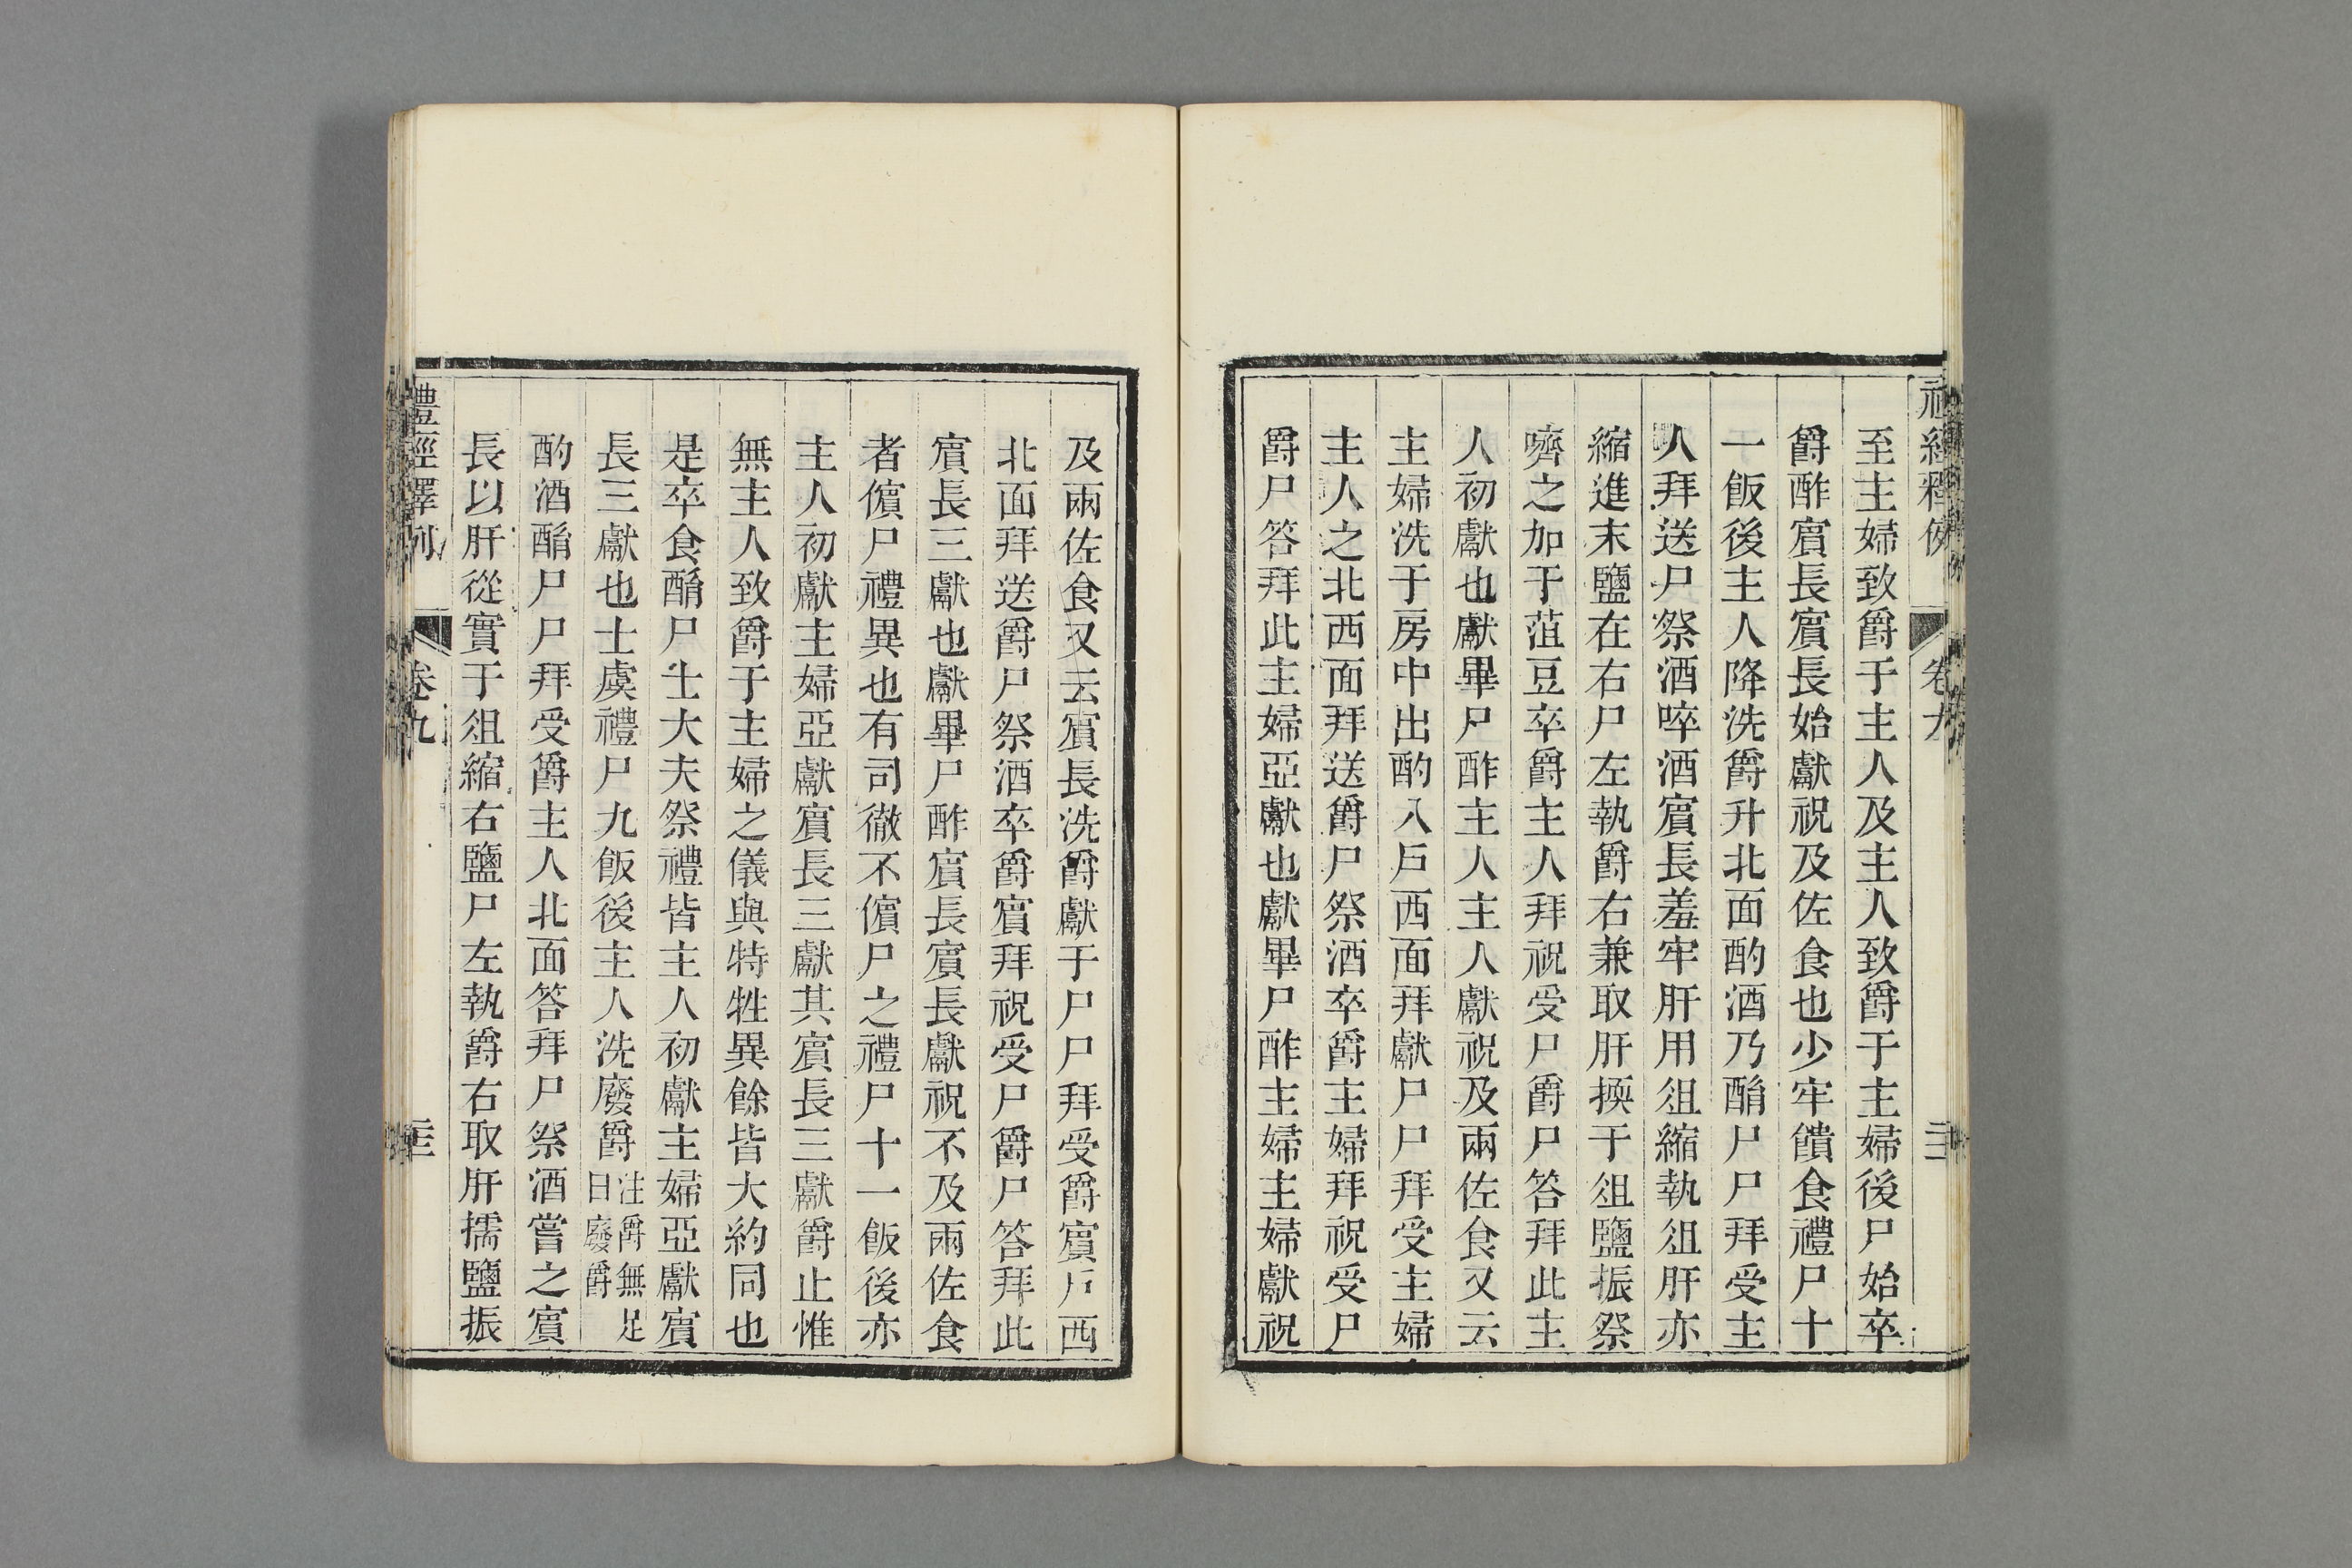 禮經釋例 卷九
至主婦致爵于主人及主人致爵于主婦後尸始卒
爵酢賓長賓長始獻祝及佐食也少牢饋食禮尸十
一飯後主人降洗爵升北面酌酒乃酳尸尸拜受主
人拜送尸祭酒啐酒賓長羞牢肝用俎縮執俎肝亦
縮進末鹽在右尸左執爵右兼取肝擩于俎鹽振祭
嚌之加于菹豆卒爵主人拜祝受尸爵尸答拜此主
人初獻也獻畢尸酢主人主人獻祝及兩佐食又云
主婦洗于房中出酌入戶西面拜獻尸尸拜受主婦
主人之北西面拜送爵尸祭酒卒爵主婦拜祝受尸
爵尸答拜此主婦亞獻也獻畢尸酢主婦主婦獻祝
及兩佐食又云賓長洗爵獻于尸尸拜受爵賓戶西
北面拜送爵尸祭酒卒爵賓拜祝受尸爵尸答拜此
賓長三獻也獻畢尸酢賓長賓長獻祝不及兩佐食
者儐尸禮異也有司徹不儐尸之禮尸十一飯後亦
主人初獻主婦亞獻賓長三獻其賓長三獻爵止惟
無主人致爵于主婦之儀與特牲異餘皆大約同也
是卒食酳尸士大夫祭禮皆主人初獻主婦亞獻賓
長三獻也士虞禮尸九飯後主人洗廢爵注爵無足曰廢爵
酌酒酳尸尸拜受爵主人北面答拜尸祭酒嘗之賓
長以肝從實于俎縮右鹽尸左執爵右取肝擩鹽振
禮經釋例 卷九